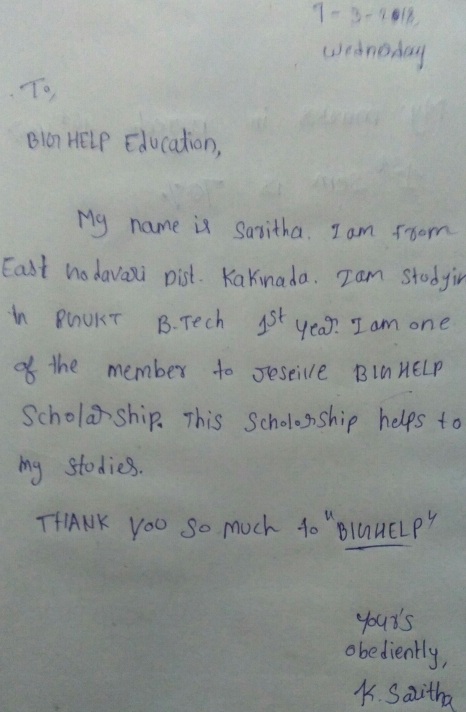 7-3-2018,
Wednesday
To,
BIG HELP Education,
My name is Saritha. I am from
East Godavari Dist. Kakinada. I am Studyin
in RGUKT B.Tech 1st year. I am one
of the member to reseive BIG HELP
Scholarship. This Scholorship helps to
my studies.
THANK YOU So much to "BIGHELP"
your's
obediently,
K. Saritha